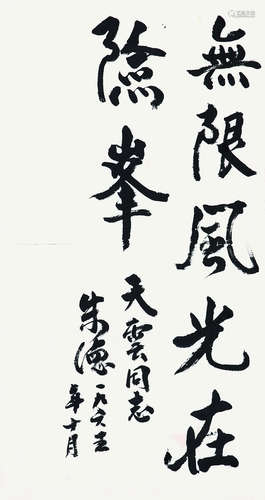 無限風光在
險峯
天雲同志
朱德一九六五
年十月